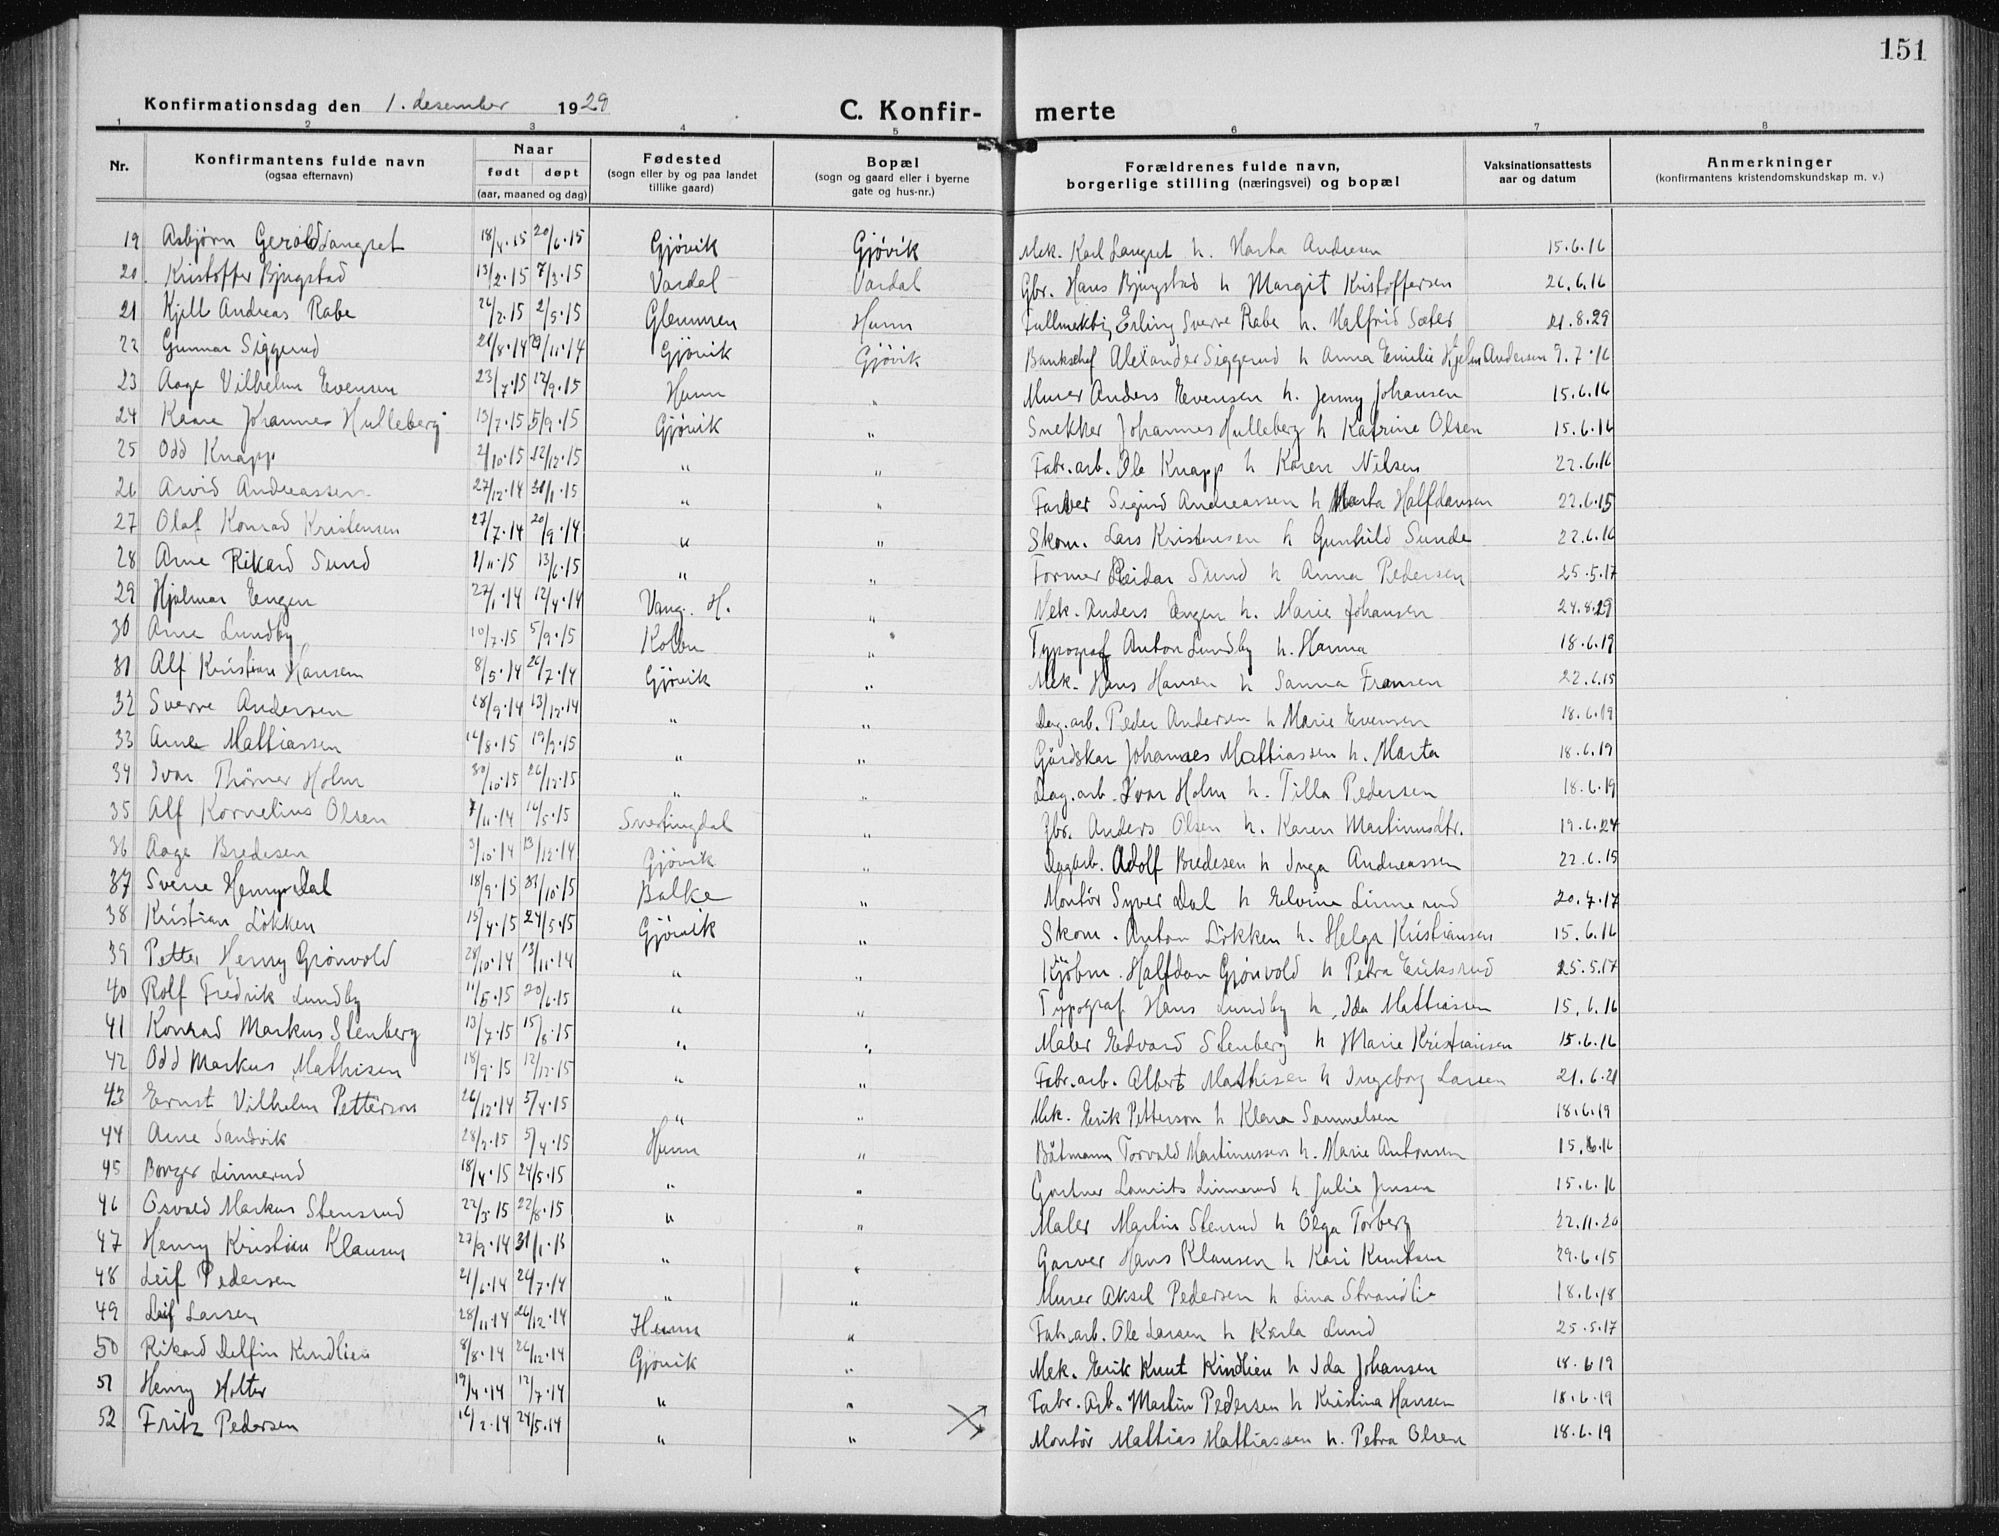 151
Konfirmationsdag den 1. desember 1929
C. Konfir- merte
1 2 3 4 5 6 7 8
Nr.
Konfirmantens fulde navn (ogsaa efternavn)
Naar født døpt (aar, maaned og dag)
Fødested (sogn eller by og paa landet tillike gaard)
Bopæl (sogn og gaard eller i byerne gate og hus-nr.)
Forældrenes fulde navn, borgerlige stilling (næringsvei) og bopæl
Vaksinationsattests aar og datum
Anmerkninger (konfirmantens kristendomskundskap m. v.)
19 Asbjørn Gerold Langret 18/4.15 20/6.15 Gjøvik Gjøvik Mek. Karl Langret h. Marta Andresen 15.6.16
20 Kristoffer Bjugstad 13/2.15 7/3.15 Vardal Vardal Gbr. Hans Bjugstad h Margit Kristoffersen 26.6.16
21 Kjell Andreas Rabe 26/2.15 2/5.15 Glemmen Hunn Fullmektig Erling Sverre Rabe h. Halfrid Sæter 21.8.29
22 Gunnar Siggerud 29/11.14 Gjøvik Gjøvik Banksjef Alexander Siggerud h Anna Emilie Hjelm Andersen 9.7.16
23 Aage Vilhelm Evensen 23/7.15 12/9.15 Hunn " Murer Anders Evensen h. Jenny Johansen 15.6.16
24 Johannes Hulleberg 13/7.15 5/9.15 Gjøvik " Snekker Johannes Hulleberg h Katrine Olsen 15.6.16
25 Odd Knapp 2/10.15 12/12.15 " " Fabr.arb. Ole Knapp h Karen Nilsen 22.6.16
26 Arvid Andreassen 27/12.14 31/1.15 " " Sigurd Andreassen h Marta Halfdansen 22.6.15
27 Olaf Konrad Kristensen 27/7.14 20/9.14 " " Skom. Lars Kristensen h Gunhild Sunde 22.6.16
28 Arne Rikard Sund 13/6.15 " " Former Reidar Sund h Anna Pedersen 25.5.17
29 Hjalmar Engen 27/1.14 12/4.14 Vang. H. " Mek. Anders Engen h. Marie Johansen 24.8.29
30 Arne Lundby 10/7.15 5/9.15 Kolbu " Typograf Anton Lundby h. Hanna 18.6.19
31 Alf Kristian Hansen 8/5.14 26/7.14 Gjøvik " Mek. Hans Hansen h Sanna Fransen 22.6.15
32 Sverre Andersen 28/9.14 13/12.14 " " Dag.arb. Peder Andersen h Marie Evensen 18.6.19
33 Arne Mattiassen 16/8.15 19/9.15 " " Gårdskar Johannes Mattiassen h. Marta 18.6.19
34 Ivar Thørner Holm 30/10.15 26/12.15 " " Dag.arb. Ivar Holm h. Tilla Pedersen 18.6.19
35 Alf Kornelius Olsen 7/11.14 16/5.15 Snertingdal " Gbr. Anders Olsen h. Karen Martinusdtr. 19.6.24
36 Aage Bredesen 3/10.14 13/12.14 Gjøvik " Dagarb. Adolf Bredesen h Inga Andreassen 22.6.15
37 Sverre Henry Dal 18/9.15 31/10.15 Balke " Montør Syver Dal h Elvine Linnerud 20.7.17
38 Kristian Løkken 15/4.15 24/5.15 Gjøvik " Skom. Anton Løkken h. Helga Kristiansen 15.6.16
39 Petter Henry Grønvold 28/10.14 13/11.14 " " Kjøbm. Halfdan Grønvold h Petra Eriksrud 25.5.17
40 Rolf Fredrik Lundby 11/5.15 20/6.15 " " Typograf Hans Lundby h Ida Mathisen 15.6.16
41 Konrad Markus Stenberg 13/7.15 15/8.15 " " Maler Edvard Stenberg h Marie Kristiansen 15.6.16
42 Odd Markus Mathisen 18/9.15 12/12.15 " " Fabr.arb. Albert Mathisen h Ingeborg Larsen 21.6.21
43 Ernst Vilhelm Petterson 26/12.14 5/4.15 " " Mek. Erik Petterson h Klara Samuelsen 18.6.19
44 Arne Sandvik 28/2.15 5/4.15 Hunn " Båtmann Torvald Martinussen h. Marie Antonsen 15.6.16
45 Borger Linnerud 18/4.15 24/5.15 " " Gartner Laurits Linnerud h Julie Jensen 15.6.16
46 Osvald Markus Stensrud 22/3.15 22/8.15 " " Maler Martin Stensrud h Olga Torberg 22.11.20
47 Henry Kristian Klausen 27/9.14 31/1.15 " " Garver Hans Klausen h Kari Knutsen 29.6.15
48 Leif Pedersen 21/6.14 26/7.14 " " Murer Aksel Pedersen h Lina Strandlie 18.6.18
49 Leif Larsen 28/11.14 26/12.14 Hunn " Fab.arb. Ole Larsen h Karla Lund 25.5.17
50 Rikard Delfin Kindlien 8/8.14 26/12.14 Gjøvik " Mek. Erik Knut Kindlien h Ida Johansen 18.6.19
51 Henry Holter 19/4.14 12/7.14 " " Fabr. Arb. Martin Pedersen h Kristina Hansen 18.6.19
52 Fritz Pedersen 16/2.14 24/5.14 " " Montør Mattias Mattiassen h. Petra Olsen 18.6.19